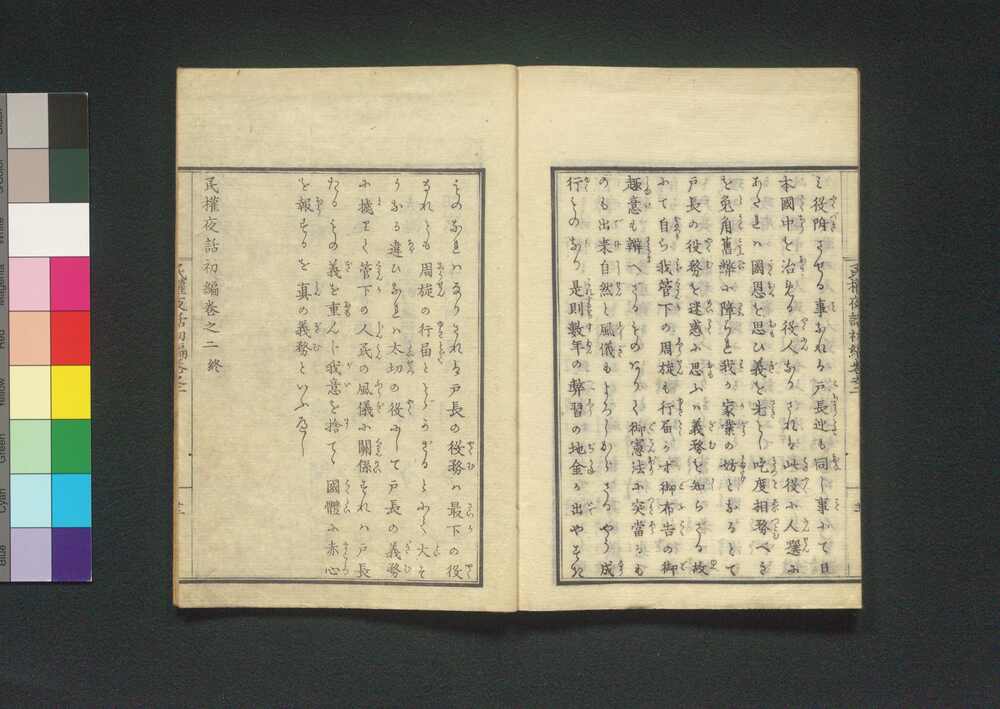 く役附させる事なれば戸長迚も同し事にて日
本國中を治める役人なりされば此役に人選に
あたらば國恩を思ひ義を先とし吃度相務べき
を兎角舊弊に陥りて我が家業の妨となるとて
戸長の役務を迷惑に思ふは義務を知らざる故
にて自ら我管下の周旋も行届かず御布告の御
趣意も辨へざるものありて御憲法に突當るも
のも出来自然と風儀もよろしからざるやうに成
行ものなり是則数年の弊習の地金が出やすき
ものなればなりされば戸長の役務は最下の役
なれども周旋の行届とゞかざるとにて大そ
うなる違ひなれば大切の役にして戸長の義務
に擬りて管下の人民の風儀に關係すれば戸長
たるもの義を重んじ我意を捨てゝ國體に赤心
を報ずるを真の義務といふべし
民權夜話初編巻之二終
民權夜話初編巻之二